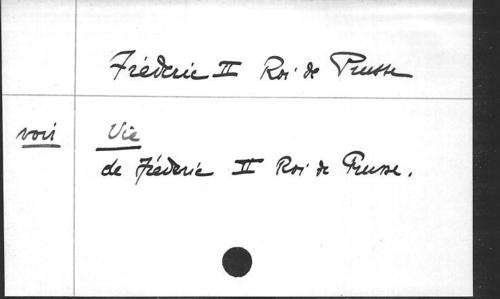 Fréderic II Roi de Prusse
voir Vie
de Fréderic II Roi de Prusse.